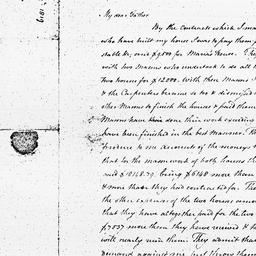 My dear Father
By the Contracts which I ma
who have built my house I was to pay them
stable &c and $9,500 for Maria's House. I ha
with two Masons who undertook to do all t
two houses for $12,000. With these Masons I
& the Carpenters became so too & dismissed
other Masons to finish the houses & paid them
Masons have done their work
have been finished in the best manner.
produce to me accounts of the money
that for the mason work of both houses th
paid $18148.79 being $6148 more than
& more than they had contracted for. The
the other expenses of the two houses
that they have altogether paid for the two
$7,837 more than they have received & h
will nearly ruin them. They admit that
demand against me, but throw them